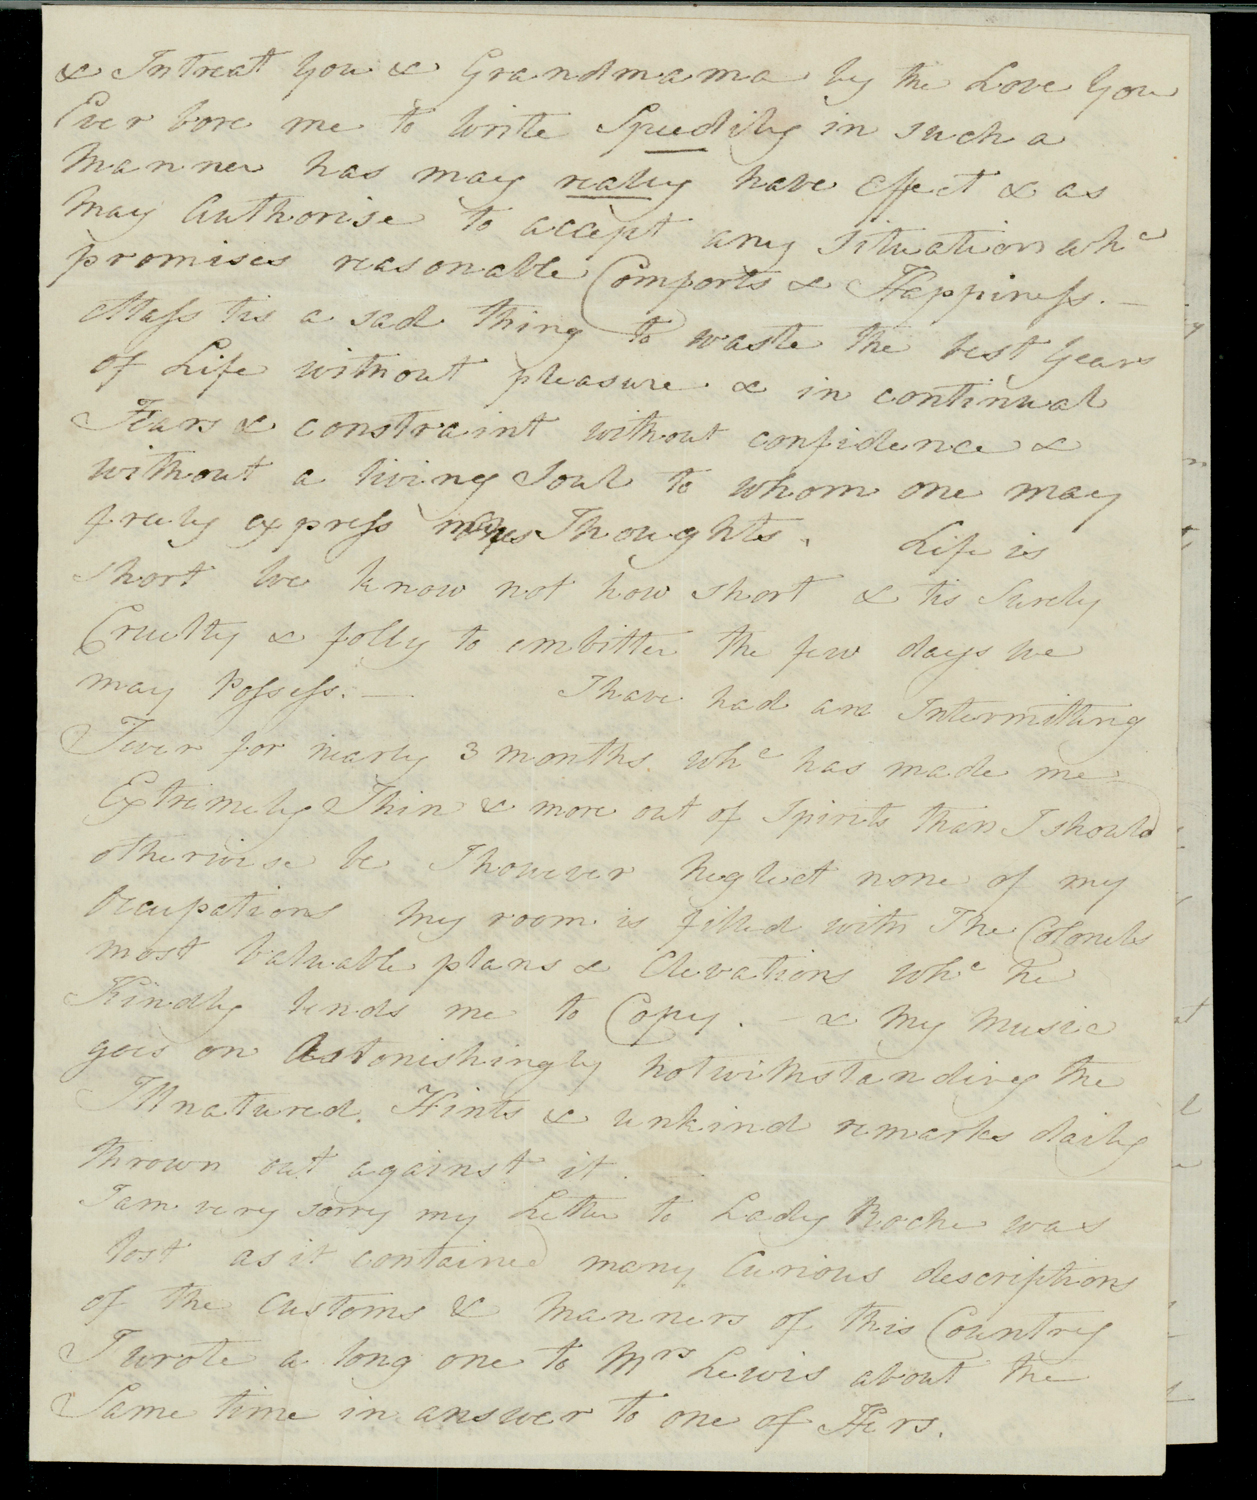 & Intreat You & Grandmama by the Love You
Ever bore me to write Speedily in such a
Manner has may realy have effect & as
May Authorise to accept any Situation whc
promises reasonable Comforts & Happiness. —
Alass tis a sad thing to waste the best Years
of Life without pleasure & in continual
Fears & constraint without confidence &
without a living Soul to whom one may
freely express Thoughts. Life is
short we know not how short & tis Surely
Cruelty & folly to embitter the few days we
may Possess. — I have had an Intermitting
Fever for nearly 3 months whc has made me
Extremely Thin & more out of Spirits than I should
otherwise be I however Neglect none of my
Occupations My room is filled with The Colonels
most Valuable plans & Elevations whc he
Kindly lends me to Copy. — & My Music
goes on Astonishingly notwithstanding the
Illnatured. Hints & unkind remarks daily
thrown out against it.
I am very sorry my Letter to Lady Roche was
lost as it contained many Curious descriptions
of the Customs & Manners of this Country
I wrote a long one to Mrs Lewis about the
Same time in answer to one of Hers.